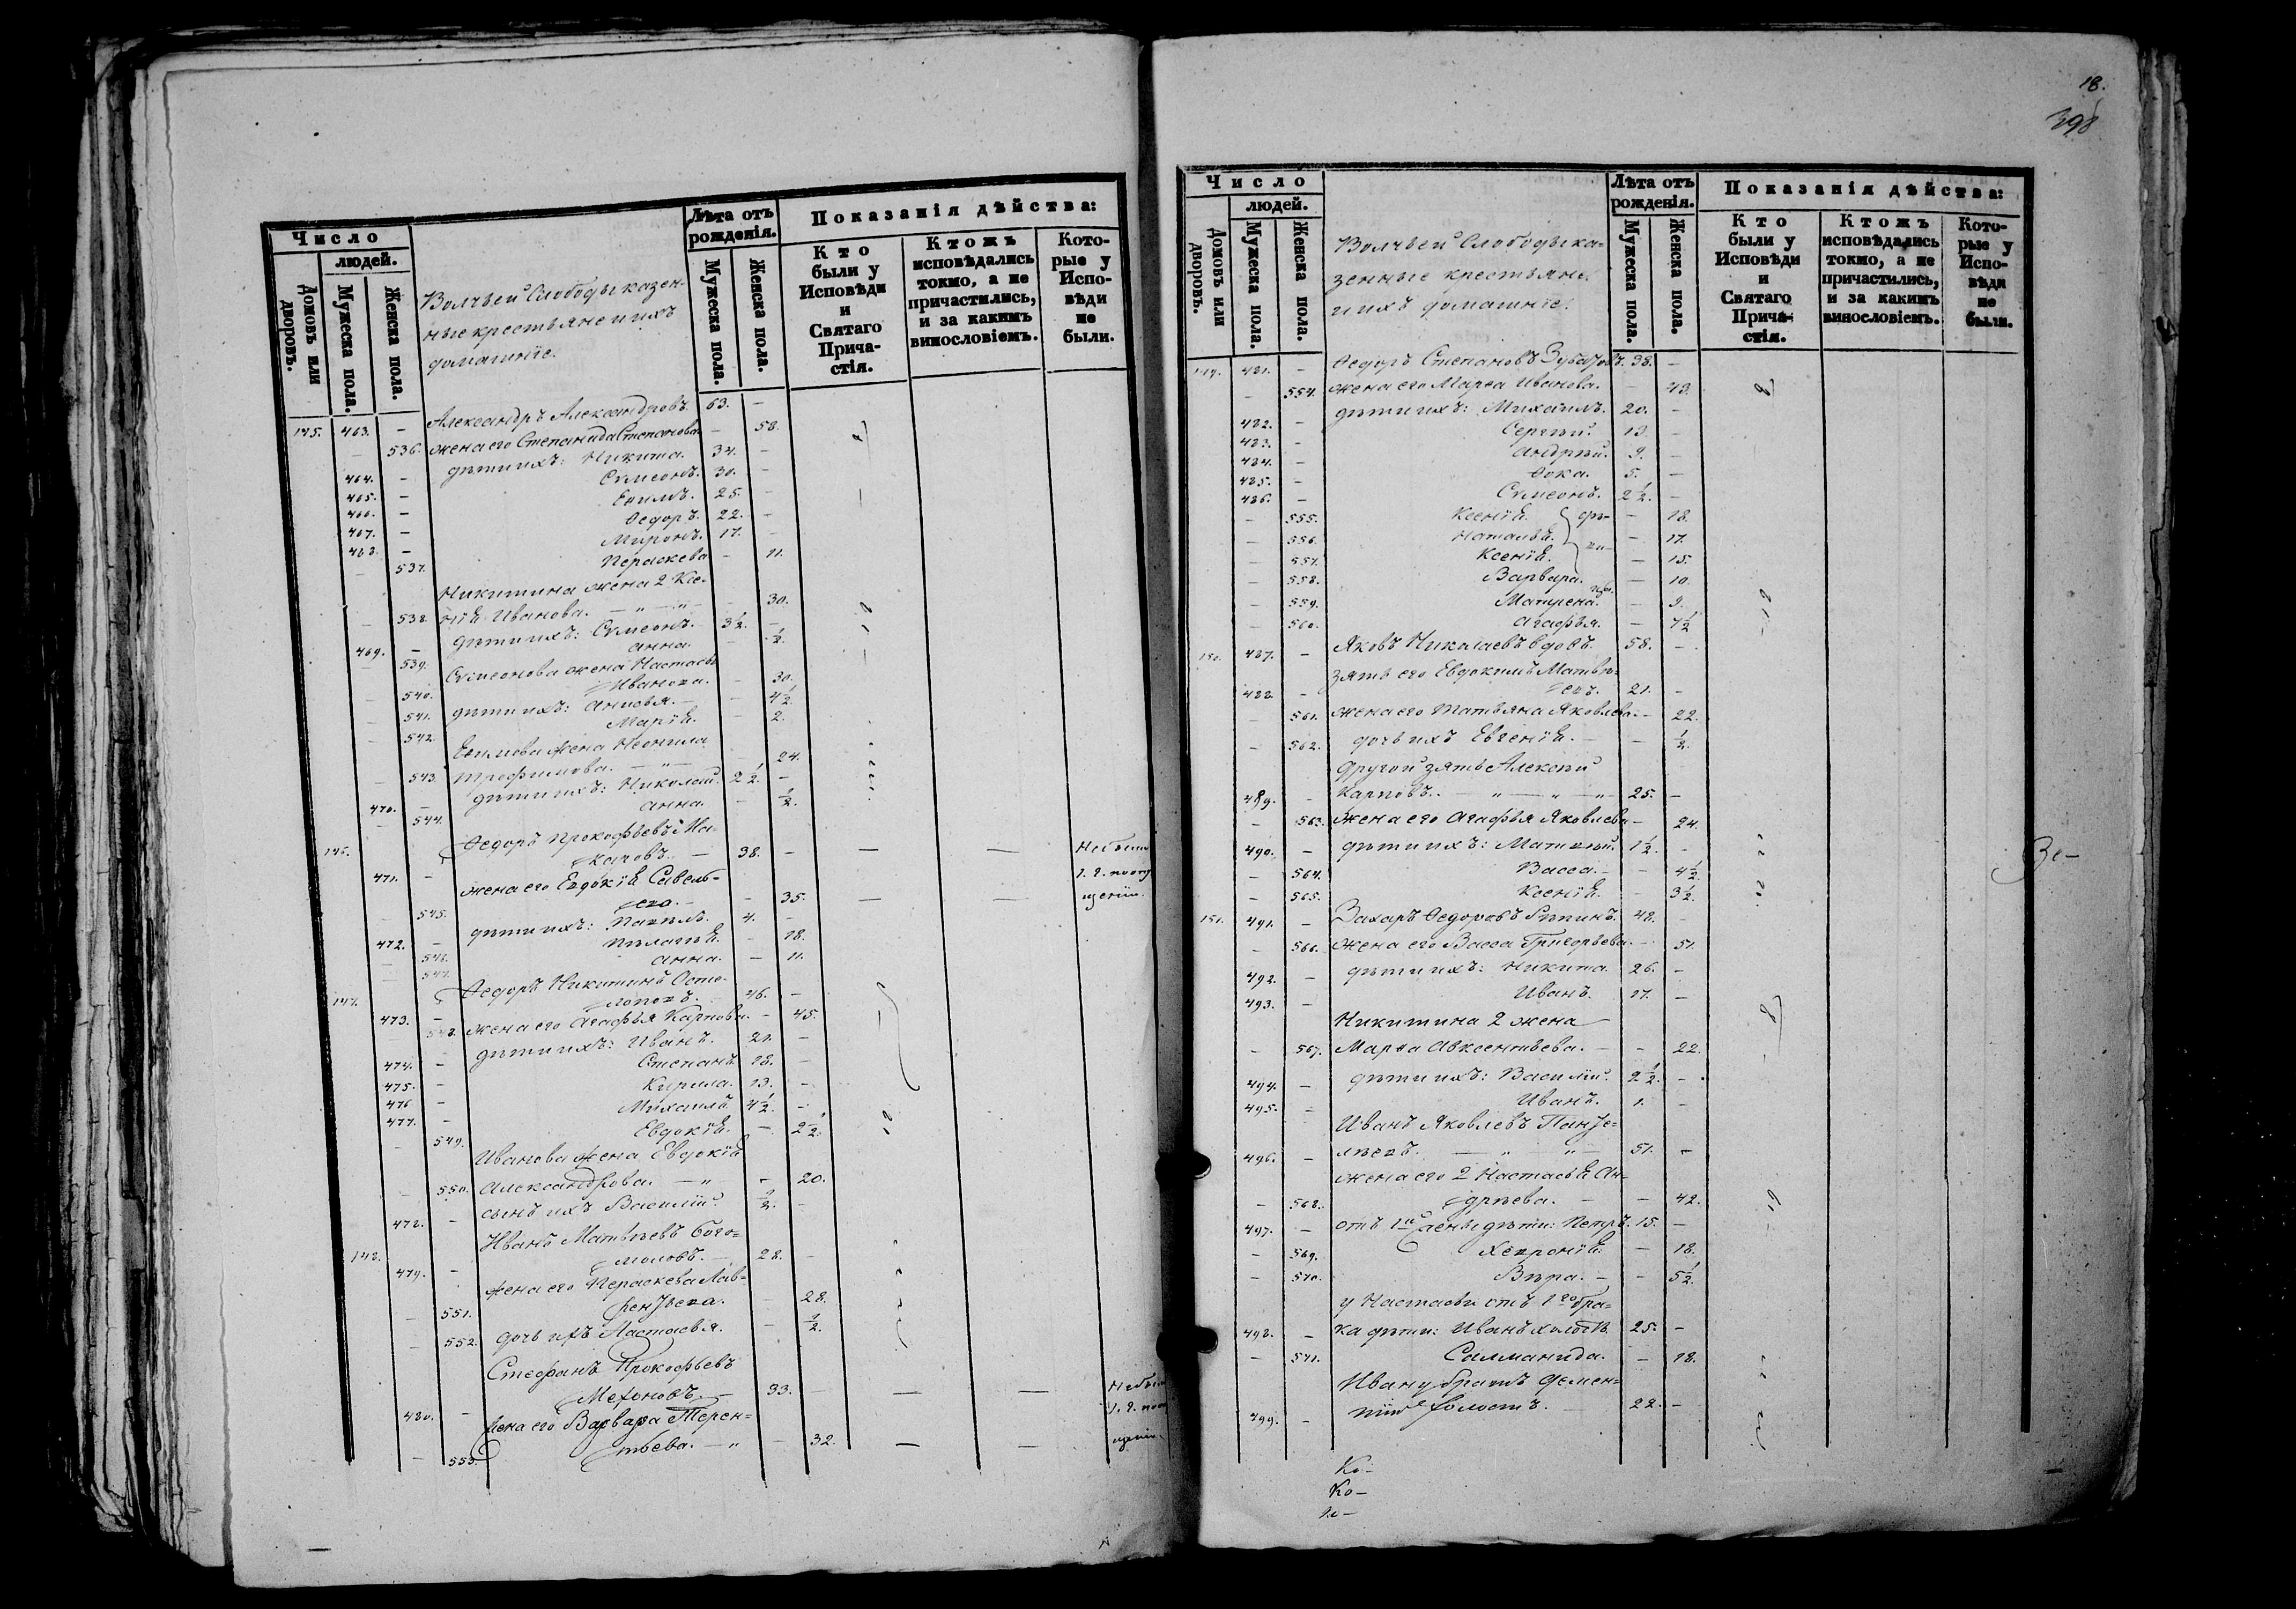 Число
людей.
Домовъ или дворовъ.
Мужеска пола.
Женска пола.
Волчьей Слободы казен-
ные крестьяне и ихъ
домашніе.
Лѣта отъ рожденія.
Мужеска пола.
Женска пола.
Показанія дѣйства:
Кто были у Исповѣди и Святаго Прича-стія.
Ктожъ исповѣдались токмо, а не причастились, и за какимъ винословіемъ.
Кото-рые у Испо-вѣди не были.
145. 463. – Александръ Александровъ. 63. –
– 536. жена его Степанида Степанова – 58.
464. – дѣти ихъ: Никита. 34. –
465. – Сѵмеонъ. 30. –
466. – Ефимъ. 25. –
467. – Ѳедоръ. 22. –
468. – Миронъ. 17. –
– 537. Пераскева – 11.
Никитина жена 2 Ксе-
– 538. нія Иванова. – 30.
469. – дѣти ихъ: Сѵмеонъ. 3½. –
– 539. Анна. – ½.
Сѵмеонова жена Настасья
– 540. Иванова. – 30.
– 541. дѣти ихъ: Анисья. – 4½
– 542. Марія. – 2.
Ефимова жена Неонила
– 543. Трофимова. – 24.
470. – дѣти ихъ: Николай. 2½. –
– 544. Анна. – ½.
146. Ѳедоръ Прокофьевъ Ма-
471. – каровъ. 38. – – – Не были
жена его Евдокія Савель-
– 545. ева. – 35. – –
472. – дѣти ихъ: Павелъ. 4. –
– 546. Пелагія. – 18.
– 547. Анна. – 11.
147. Ѳедоръ Никитинъ Осто-
473. – лоповъ. 46. –
– 548. жена его Агафья Карпова. – 45.
474. – дѣти ихъ: Иванъ. 21. –
475. – Степанъ 18. –
476 – Кирила. 13. –
477. – Михаилъ 4½. –
– 549. Евдокія. – 2½.
Иванова жена Евдокія
– 550. Александрова. – 20.
478. – сынъ ихъ Василій. ½. –
148. Иванъ Матвѣевъ Бого-
479. – моловъ. 28. –
жена его Пераскева Лав-
– 551. рентьева. – 28.
– 552. дочь ихъ Настасья. – ½.
Стефанъ Прокофьевъ
480. – 33. – – – Не были
жена его Варвара Терен-
– 553. тьева. – 32. – –
18.
398
Число
людей.
Домовъ или дворовъ.
Мужеска пола.
Женска пола.
Волчьей Слободы ка-
зенные крестьяне
и ихъ домашніе.
Лѣта отъ рожденія.
Мужеска пола.
Женска пола.
Показанія дѣйства:
Кто были у Исповѣди и Святаго Прича-стія.
Ктожъ исповѣдались токмо, а не причастились, и за какимъ винословіемъ.
Кото-рые у Испо-вѣди не были.
149. 481. – Ѳедоръ Степановъ 38. –
– 554. жена его Марѳа Иванова. – 43.
482. – дѣти ихъ: Михаилъ. 20. –
483. – Сергѣй. 13. –
484. – Андрѣй. 9. –
485. – Ѳока. 5. –
486. – Сѵмеонъ. 2½. –
– 555. Ксенія. – 18.
– 556. Наталья. – 17.
– 557. Ксенія. – 15.
– 558. Варвара. – 10.
– 559. Матрена. – 9.
– 560. Агафья. – 7½
150. 487. – Яковъ Николаевъ вдовъ. 58. –
зять его Евдокимъ Матвѣ-
488. – евъ. 21. –
– 561. жена его Татьяна Яковлева. – 22.
– 562. дочь ихъ Евгенія. – ½.
Другой зять Алексѣй
489. – Карповъ. 25. –
– 563. жена его Агафья Яковлева – 24.
490. – дѣти ихъ: Матвѣй. 1½. –
– 564. Васса. – 4½
– 565. Ксенія. – 3½.
Зе–
151. 491. – Захаръ Ѳедоровъ Рѣпинъ. 48. –
– 566. жена его Васса Григорьева. – 51.
492. – дѣти ихъ: Никита. 26. –
493. – Иванъ. 17. –
Никитина 2 жена
– 567. Марѳа Авксентьева. – 22.
494. – дѣти ихъ: Василій. 2½. –
495. – Иванъ. 1. –
Иванъ Яковлевъ Панте-
496. – лѣевъ. 51. –
жена его 2 Настасья Ан-
– 568. дрѣева. – 42.
497. – отъ 1й жены дѣти: Петръ. 15. –
– 569. Хевронія. – 18.
– 570. Вѣра. – 5½.
у Настасьи отъ 1го бра-
498. – ка дѣти: Иванъ холостъ. 25. –
– 571. Салманида. – 18.
Ивану братъ Демен-
499. – тій холостъ. 22. –
Ко–
Ко–